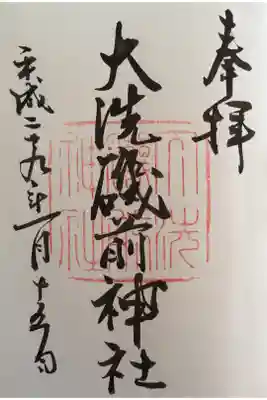 奉拝
大洗磯前神社
平成二十九年一月十五日